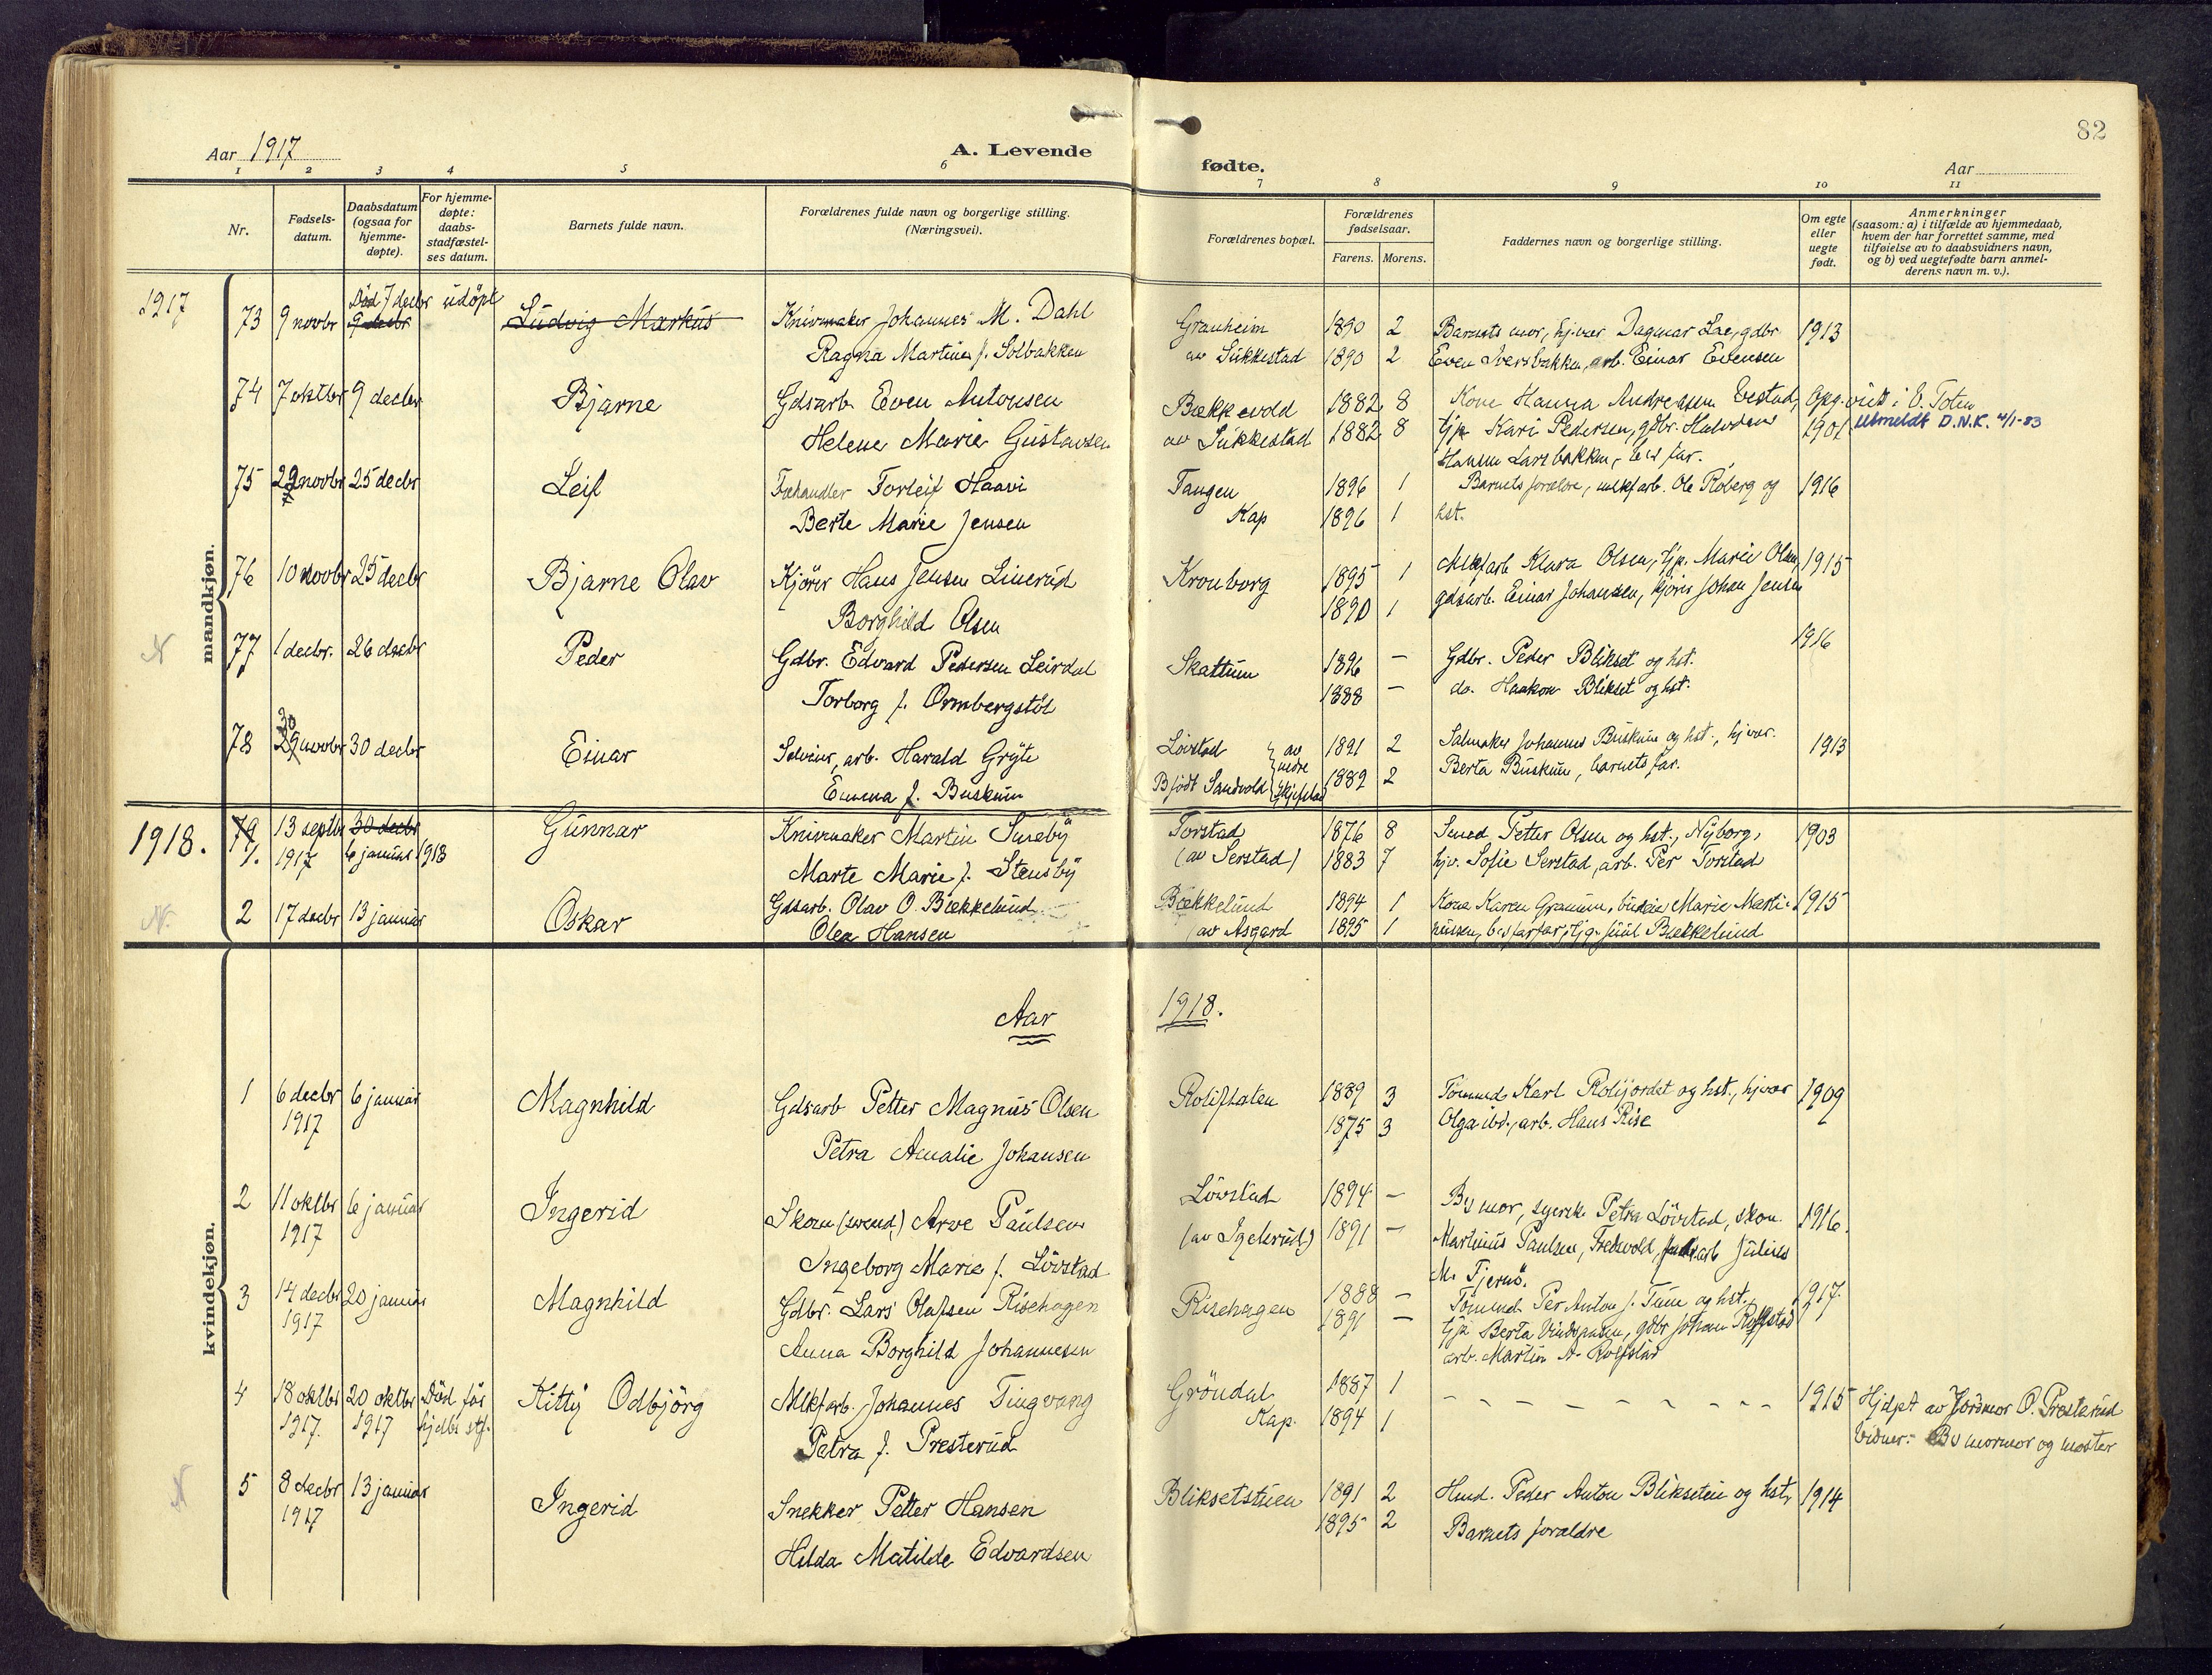 82
Aar 1917
A. Levende
fødte.
Aar
1 2 3 4 5 6 7 8 9 10 11
Nr.
Fødsels-
datum.
Daabsdatum
(ogsaa for
hjemme-
døpte).
For hjemme-
døpte:
daabs-
stadfæstel-
ses datum.
Barnets fulde navn.
Forældrenes fulde navn og borgerlige stilling.
(Næringsvei).
Forældrenes bopæl.
Forældrenes
fødselsaar.
Farens. Morens.
Faddernes navn og borgerlige stilling.
Om egte
eller
uegte
født.
Anmerkninger
(saasom: a) i tilfælde av hjemmedaab,
hvem der har forrettet samme, med
tilføielse av to daabsvidners navn,
og b) ved uegtefødte barn anmel-
derens navn m. v.).
mandkjøn.
1917
73 9 novbr Död 7 decbr udöpt Ludvig Markus Knivmaker Johannes M. Dahl Granheim 1890 2 Barnets mor, hjvær. Dagmar Lae, gdbr 1913
9 decbr Ragna Martine f. Solbakken av Sukkestad 1890 2 Even Iversbakken, arb. Einar Evensen
74 7 oktbr 9 decbr Bjarne Gdsarb. Even Antonsen Bækkevold 1882 8 Kone Hanna Andreassen Evestad, Opg. viet i Ö. Toten
Helene Marie Gustavsen av Sukkestad 1882 8 tjp. Kari Pedersen, gdbr. Halvdan 1901 Utmeldt D.N.K. 4/1-83
Hansen Larsbakken, bs far.
75 29 novbr 25 decbr Leif Frehandler Torleif Haavi Tangen 1896 1 Barnets forældre, mlkfarb. Ole Röberg og 1916
Berte Marie Jensen Kap 1896 1 hst.
76 10 novbr 25 decbr Bjarne Olav Kjörer Hans Jensen Linerud Kronborg 1895 1 Mlkfarb Klara Olsen, tjp. Marie Olsen, 1915
Borghild Olsen 1890 1 gdsarb. Einar Johansen, kjörer Johan Jensen
N 77 1 decbr. 26 decbr Peder Gdbr. Edvard Pedersen Leirdal Skattum 1896 — Gdbr. Peder Blikset og hst. 1916
Torborg f. Ormbergstöl 1888 — do. Haakon Blikset og hst.
78 30 novbr 30 decbr Einar arb. Harald Gryte Lövstad 1891 2 Salmaker Johannes Buskum og hst., hjvær. 1913
Emma f. Buskum Bfödt Sandvold av nedre Skjefstad 1889 2 Berta Buskum, barnets far.
1918. 79 13 septbr 30 decbr Gunnar Knivmaker Martin Smeby Torstad 1876 8 Smed Petter Olsen og hst., Nyborg, 1903
1. 1917 6 januar 1918 Marte Marie f. Stensby (av Serstad) 1883 7 hjv. Sofie Serstad, arb. Per Torstad
N. 2 17 decbr 13 januar Oskar Gdsarb. Olav O. Bækkelund Bækkelund 1894 1 Kone Karen Granum, budeie Marie Marti- 1915
Olea Hansen av Asgard 1895 1 niussen, bs farfar, tjg. Juul Bækkelund
Aar 1918.
kvindekjøn.
1 6 decbr 6 januar Magnhild Gdsarb Petter Magnus Olsen 1889 3 Tömmd Karl Rolijordet og hst., hjvær 1909
1917 Petra Amalie Johansen 1875 3 Olga ibd., arb. Hans Rise
2 11 oktbr 6 januar Ingerid Skom (svend) Arve Paulsen Lövstad 1894 — Bs mor, syersk. Petra Lövstad, skom. 1916.
1917 Ingeborg Marie f. Lövstad (av Igelsrud) 1891 — Martinius Paulsen, Fredvold, arb Julius
M. Tjernö.
3 14 decbr 20 januar Magnhild Gdbr. Lars Olafsen Risehagen Risehagen 1888 — Tömmd. Per Anton f. Tum og hst., 1917.
1917 Anna Borghild Johannesen 1891 — tjp. Berta gdbr Johan Rolfstad
arb. Martin A. Rolfstad
4 18 oktbr 20 oktbr Död för Kitty Odbjörg Mlkfarb. Johannes Tingvang Gröndal 1887 1 - - - - - - - - - 1915 Hjdpt av Jordmor O. Presterud
1917. 1917 hjdbs stf. Petra f. Presterud Kap. 1894 1 Vidner: Bs mormor og moster
N 5 8 decbr 13 januar Ingerid Snekker Petter Hansen Bliksetstuen 1891 2 Hmd. Peder Anton Bliksetei og hst, 1914
1917 Hilda Matilde Edvardsen 1895 2 Barnets forældre